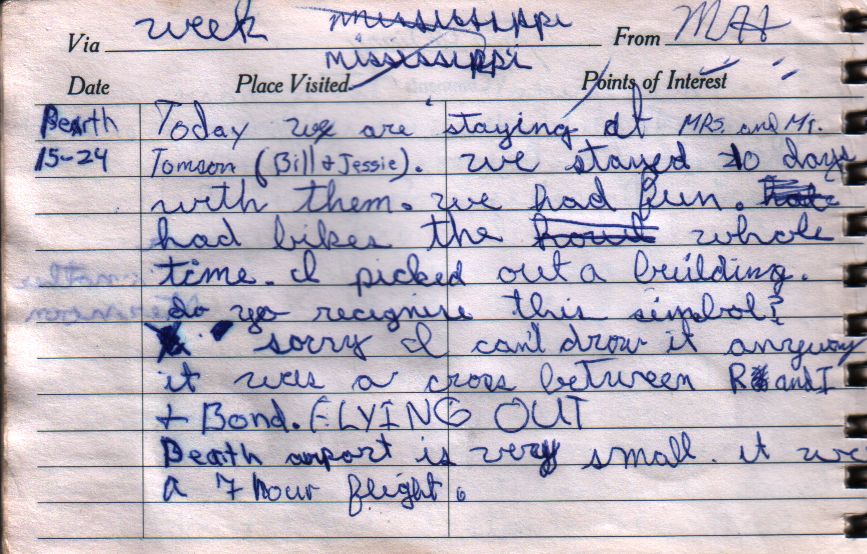 Via week mississippi From MAA
mississippi
Date Place Visited Points of Interest
Bearth Today we are staying at MRS. and Mr.
15-24 Tomson (Bill + Jessie). we stayed 10 days
with them. we had fun.
had bikes the whole
time. I picked out a building.
do yo recignise this simbol?
sorry I can't drow it anyway
it was a cross between R and I
+ Bond. FLYING OUT
Bearth airport is very small. it we
a 7 hour fleight.